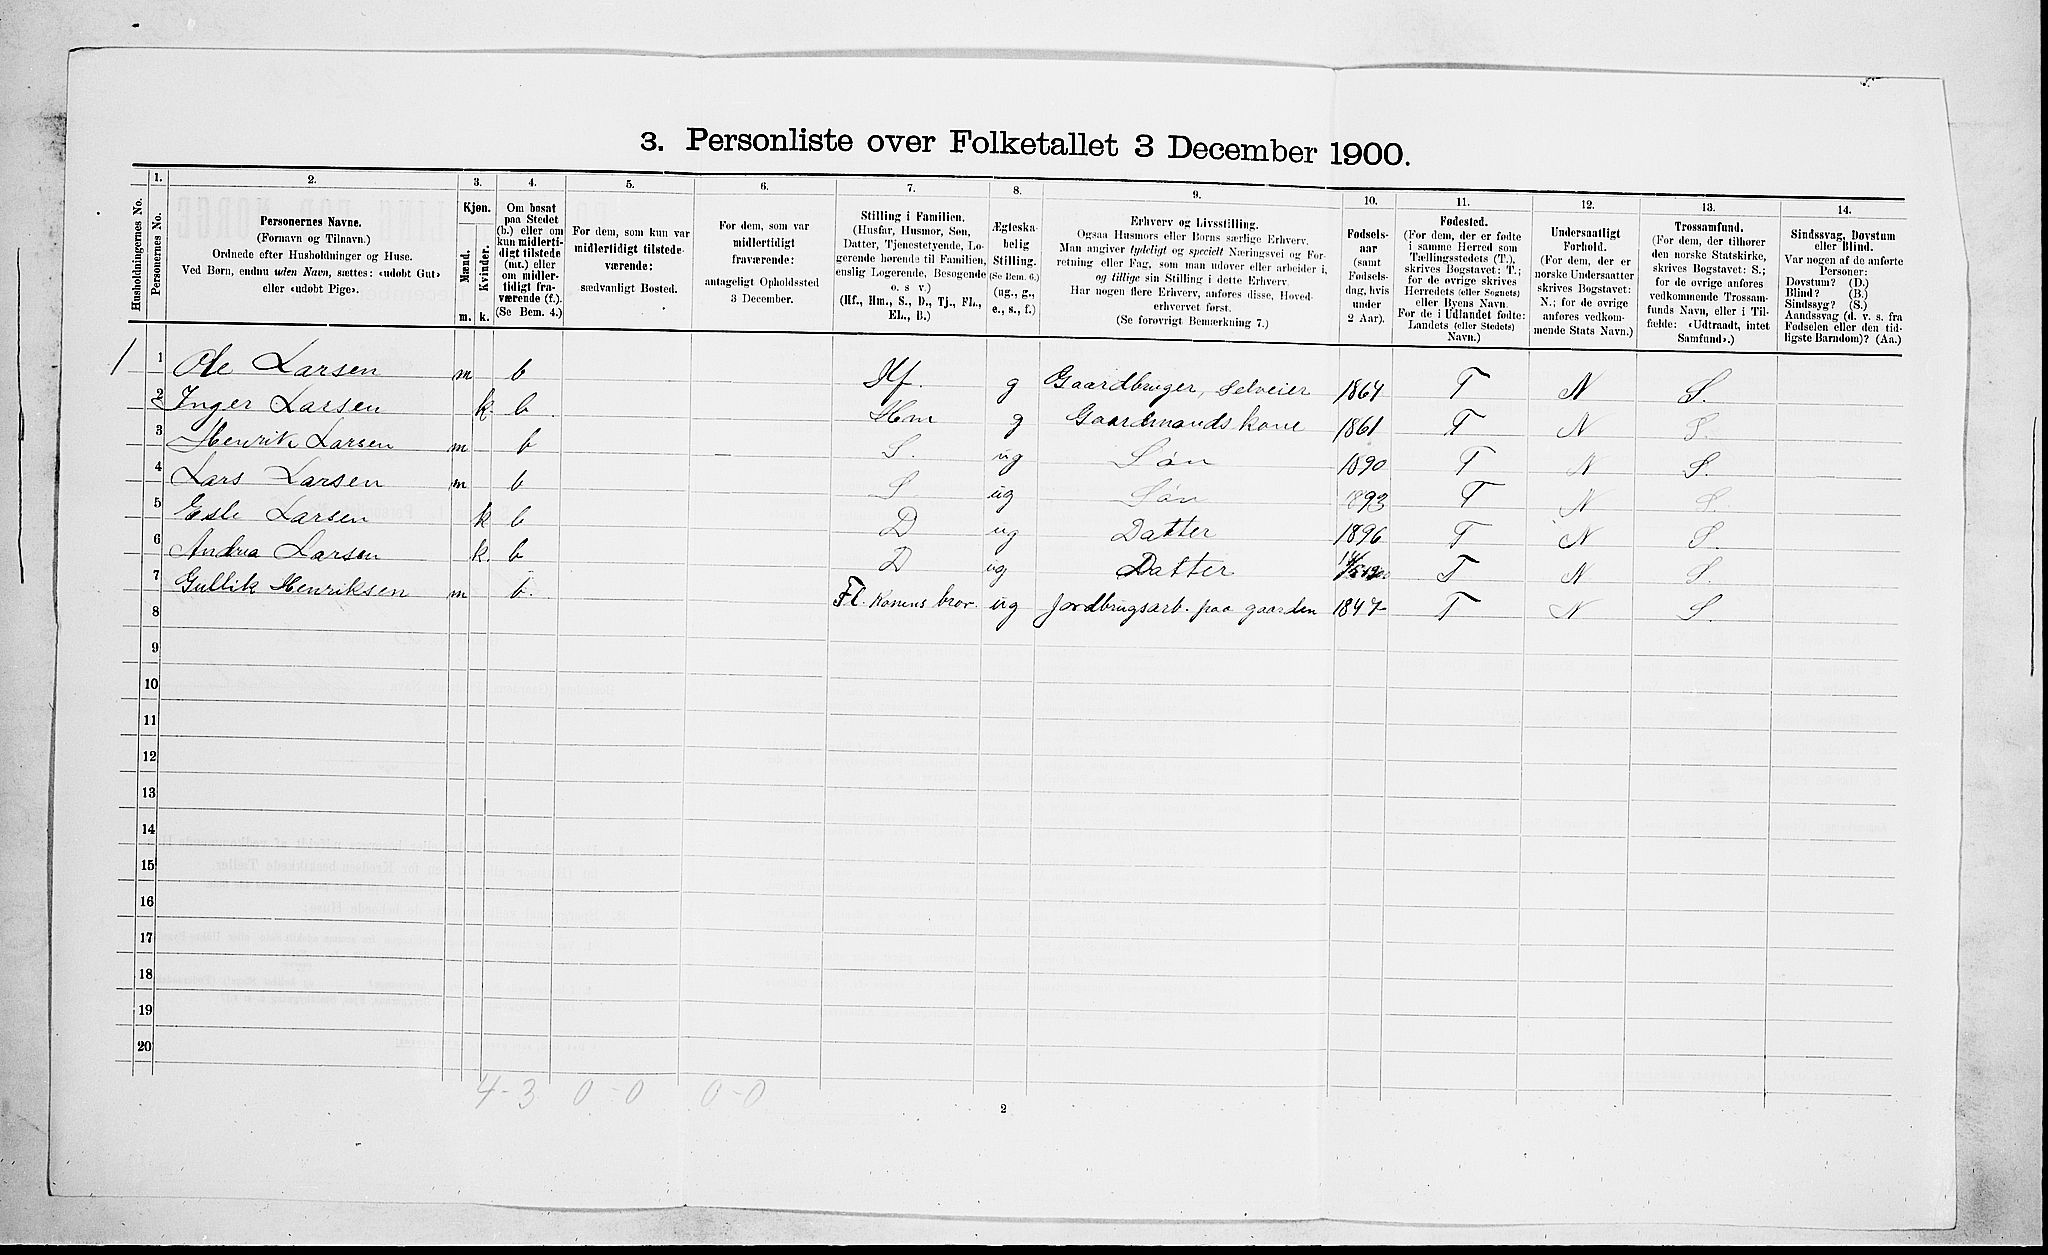 3. Personliste over Folketallet 3 December 1900.
1. 2. 3. 4. 5. 6. 7. 8. 9. 10. 11. 12. 13. 14.
Husholdningernes No.
Personernes No.
Personernes Navne.
(Fornavn og Tilnavn.)
Ordnede efter Husholdninger og Huse.
Ved Børn, endnu uden Navn, sættes: «udøbt Gut»
eller «udøbt Pige».
Kjøn.
Mænd.
Kvinder.
m. k.
Om bosat
paa Stedet
(b.) eller om
kun midlerti-
digt tilstede
(mt.) eller
om midler-
tidigt fra-
værende (f.).
(Se Bem. 4.)
For dem, som kun var
midlertidigt tilstede-
værende:
sædvanligt Bosted.
For dem, som var
midlertidigt
fraværende:
antageligt Opholdssted
3 December.
Stilling i Familien.
(Husfar, Husmor, Søn,
Datter, Tjenestetyende, Lo-
gerende hørende til Familien,
enslig Logerende, Besøgende
o. s v.)
(Hf., Hm., S., D., Tj., FL.,
EL., B.)
Ægteska-
belig
Stilling.
(Se Bem. 6.)
(ug., g.,
e., s., f.)
Erhverv og Livsstilling.
Ogsaa Husmors eller Børns særlige Erhverv.
Man angiver tydeligt og specielt Næringsvei og For-
retning eller Fag, som man udøver eller arbeider i,
og tillige sin Stilling i dette Erhverv.
Har nogen flere Erhverv, anføres disse, Hoved-
erhvervet først.
(Se forøvrigt Bemærkning 7.)
Fødsels-
aar
(samt
Fødsels-
dag, hvis
under
2 Aar).
Fødested.
(For dem, der er fødte
i samme Herred som
Tællingsstedets (T.),
skrives Bogstavet: T.;
for de øvrige skrives
Herredets (eller Sognets)
eller Byens Navn.
For de i Udlandet fødte:
Landets (eller Stedets)
Navn.)
Undersaatligt
Forhold.
(For dem, der er
norske Undersaatter
skrives Bogstavet:
N.; for de øvrige
anføres vedkom-
mende Stats Navn.)
Trossamfund.
(For dem, der tilhører
den norske Statskirke,
skrives Bogstavet: S.;
for de øvrige anføres
vedkommende Trossam-
funds Navn, eller i Til-
fælde: «Udtraadt, intet
Samfund».)
Sindssvag, Døvstum
eller Blind.
Var nogen af de anførte
Personer:
Døvstum? (D.)
Blind? (B.)
Sindssyg? (S.)
Aandssvag (d. v. s. fra
Fødselen eller den tid-
ligste Barndom)? (Aa.)
1 1 Ole Larsen m b Hf. g Gaardbruger, Selveier 1864 T N S.
2 Inger Larsen k. b. Hm g Gaardmandskone 1861 T N S.
3 Henrik Larsen m b S. ug Søn 1890 T N S.
4 Lars Larsen m b S. ug Søn 1893 T N S.
5 Larsen k b D ug Datter 1896 T N S.
6 Andrea Larsen k. b D ug Datter T N S.
7 Gullik Henriksen m b. Fl. Konens bror. ug Jordbrugsarb. paa gaarden 1847 T N S.
8
9
10
11
12
13
14
15
16
17
18
19
20
4-3 0-0 0-0
2